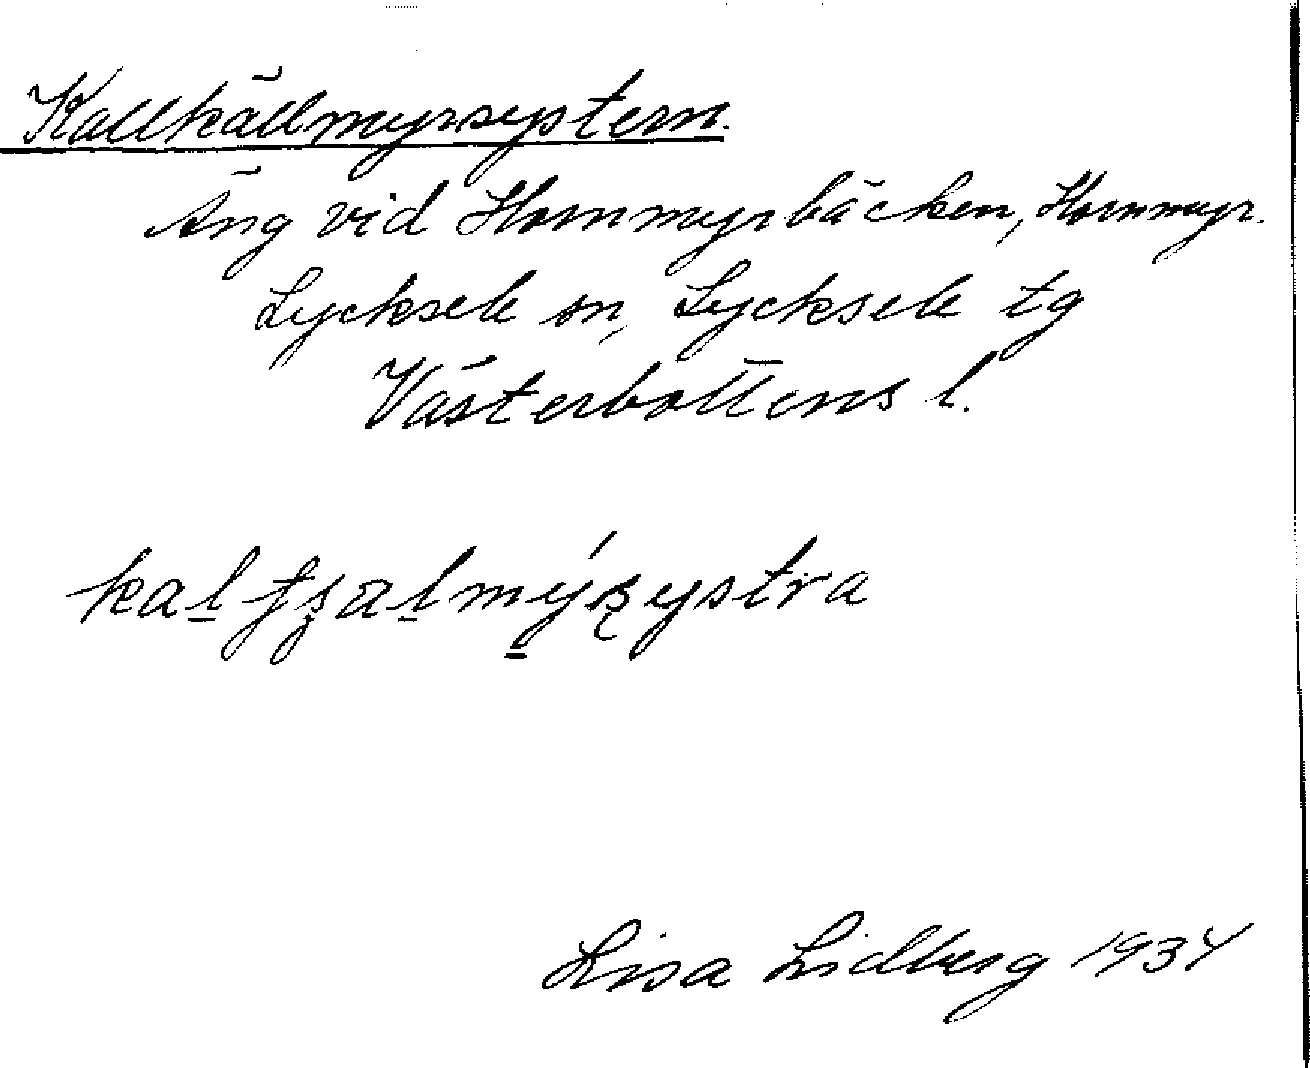 Kallkällmyrsystern.
Äng vid Hornmyrbäcken, Hornmyr.
Lycksele sn, Lycksele tg
Västerbottens l.
Lisa Lidberg 1934